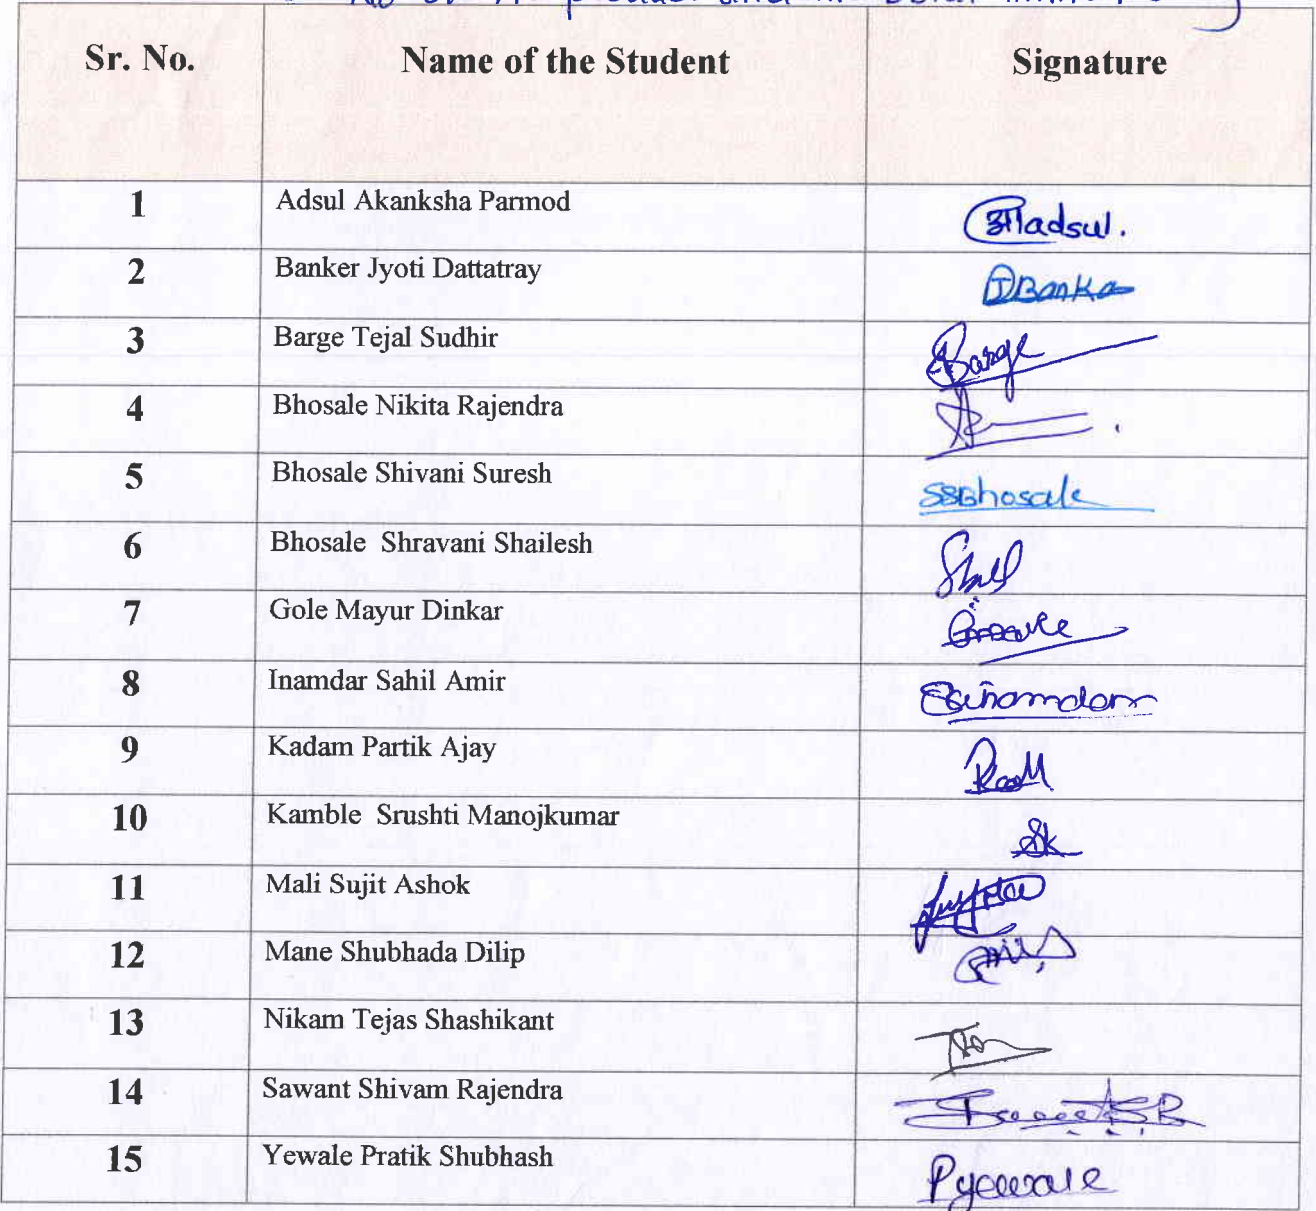 Sr. No. Name of the Student Signature
1 Adsul Akanksha Parmod आadsul.
2 Banker Jyoti Dattatray JBanka
3 Barge Tejal Sudhir Barge
4 Bhosale Nikita Rajendra
5 Bhosale Shivani Suresh SSBhosale
6 Bhosale Shravani Shailesh
7 Gole Mayur Dinkar
8 Inamdar Sahil Amir
9 Kadam Partik Ajay
10 Kamble Srushti Manojkumar Sk
11 Mali Sujit Ashok
12 Mane Shubhada Dilip
13 Nikam Tejas Shashikant
14 Sawant Shivam Rajendra
15 Yewale Pratik Shubhash Pyewale